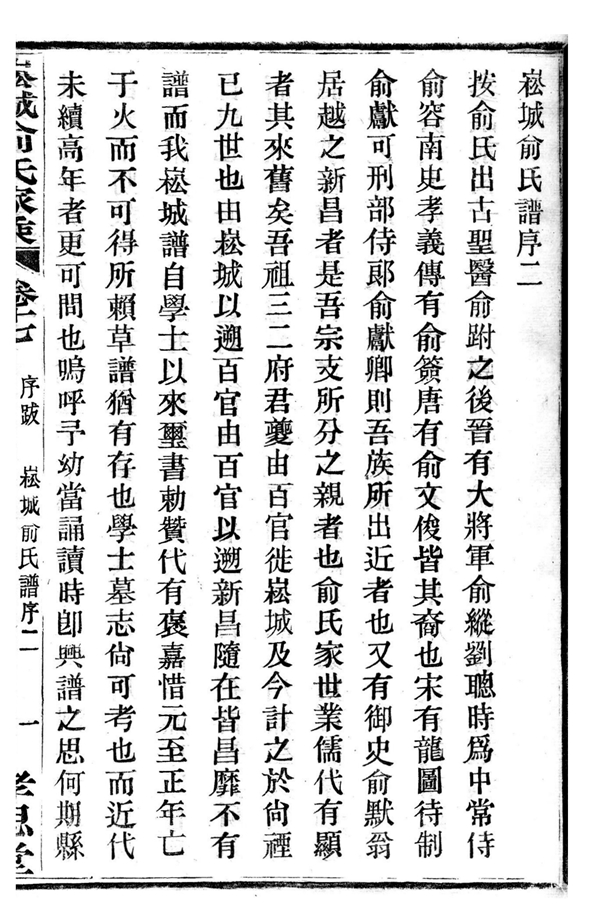 崧城俞氏譜序二
按俞氏出古聖醫俞跗之後晉有大將軍俞縱劉聰時爲中常侍
俞容南史孝義傳有俞簽唐有俞文俊皆其裔也宋有龍圖待制
俞獻可刑部侍郎俞獻卿則吾族所出近者也又有御史俞默翁
居越之新昌者是吾宗支所分之親者也俞氏家世業儒代有顯
者其來舊矣吾祖三二府君夔由百官徙崧城及今計之於尙禋
已九世也由崧城以遡百官由百官以遡新昌隨在皆昌靡不有
譜而我崧城譜自學士以來璽書勅贊代有褒嘉惜元至正年亡
于火而不可得所賴草譜猶有存也學士墓志尙可考也而近代
未續高年者更可問也嗚呼予幼當誦讀時卽興譜之思何期縣
崧城俞氏家乘 卷十七 序跋 崧城俞氏譜序二 一 孝思堂